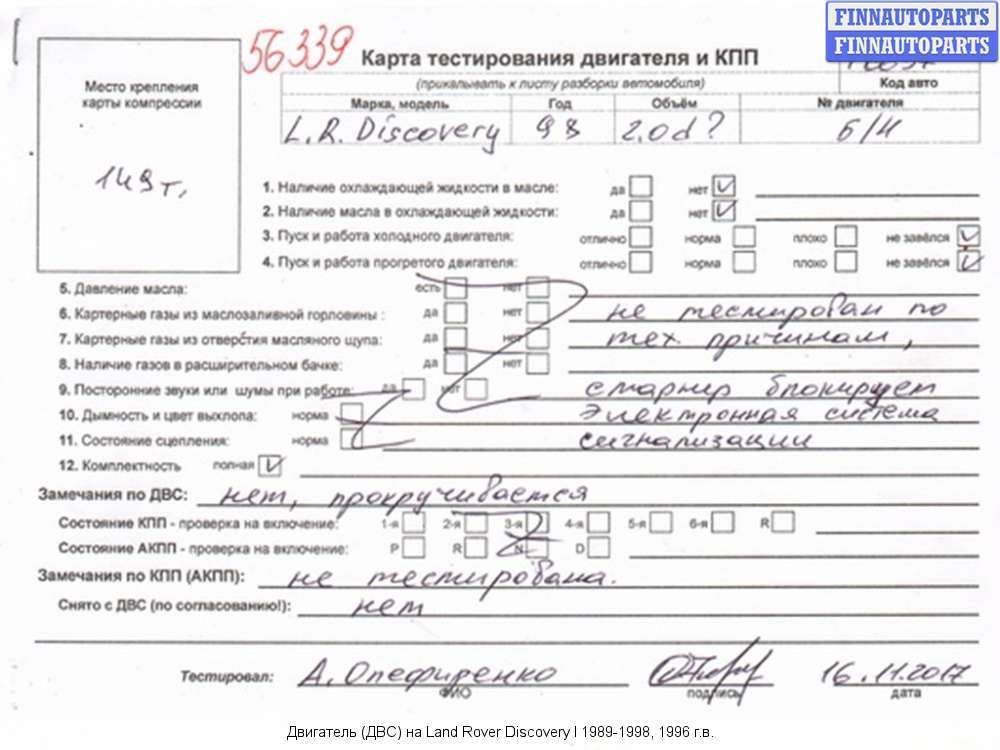 FINNAUTOPARTS
FINNAUTOPARTS
56339
Карта тестирования двигателя и КПП
(прикалывать к листу разборки автомобиля)
Код авто
Место крепления
карты компрессии
149т.
Марка, модель Год Объём № двигателя
L.R. Discovery 98 2.0d? Б/Н
1. Наличие охлаждающей жидкости в масле: да нет
2. Наличие масла в охлаждающей жидкости: да нет
3. Пуск и работа холодного двигателя: отлично норма плохо не завёлся
4. Пуск и работа прогретого двигателя: отлично норма плохо не завёлся
5. Давление масла: есть нет
6. Картерные газы из маслозаливной горловины : да нет не тестирован по
7. Картерные газы из отверстия масляного щупа: да нет тех. причинам,
8. Наличие газов в расширительном бачке: да нет
9. Посторонние звуки или шумы при работе: да нет стартер блокирует
10. Дымность и цвет выхлопа: норма Электронная система
11. Состояние сцепления: норма сигнализации
12. Комплектность полная
Замечания по ДВС: нет, прокручивается
Состояние КПП - проверка на включение: 1-я 2-я 3-я 4-я 5-я 6-я R
Состояние АКПП - проверка на включение: P R N D
Замечания по КПП (АКПП): не тестирована.
Снято с ДВС (по согласованию!): нет
Тестировал: А. 16.11.2017
ФИО подпись дата
Двигатель (ДВС) на Land Rover Discovery I 1989-1998, 1996 г.в.